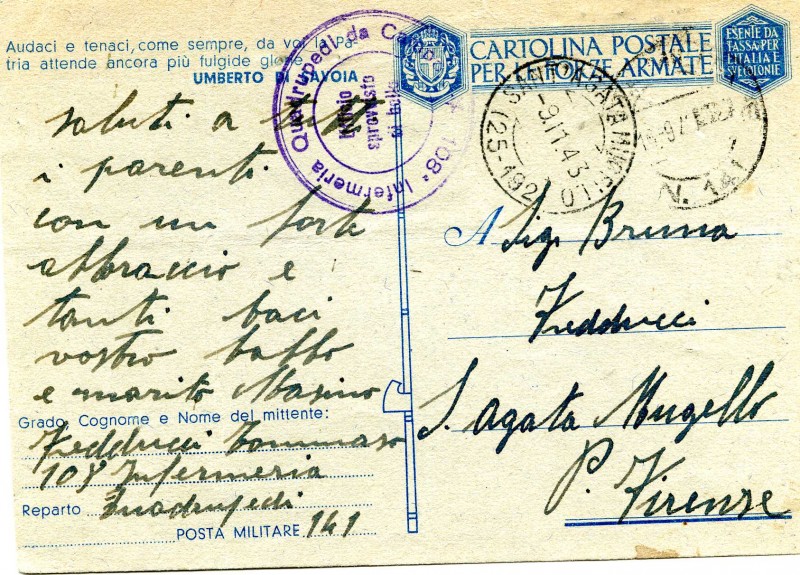 Audaci e tenaci, come sempre, da voi la Pa-
tria attende ancora più fulgide glorie.
UMBERTO DI SAVOIA
saluti a tutti
i parenti
con un forte
abbraccio e
tanti baci
vostro babbo
e marito Masino
Grado, Cognome e Nome del mittente:
Fedducci Tommaso
108 Infermeria
Reparto Quadrupedi
POSTA MILITARE 141
108ª Infermeria Quadrupedi da Campo
Ufficio
CARTOLINA POSTALE
PER LE FORZE ARMATE
ESENTE DA
TASSA PER
L'ITALIA E
SUE COLONIE
SANT'AGATA MUGELLO
(25-192)
-9.11.43
N. 141
A Sig. Bruna
Fedducci
S. Agata Mugello
P. Firenze